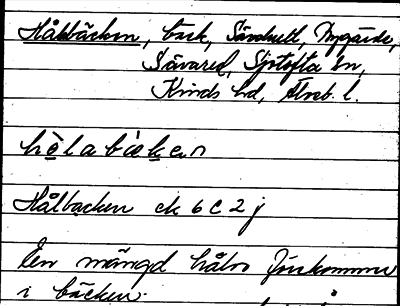 Hålabäcken, bäck, Sandhult, Nygärde,
Sävared, Sjötofta sn,
Kinds hd, Älvsb. l.
hòlabäkən
Hålbacken ek 6 C 2 j
En mängd hålor förekommer
i bäcken.